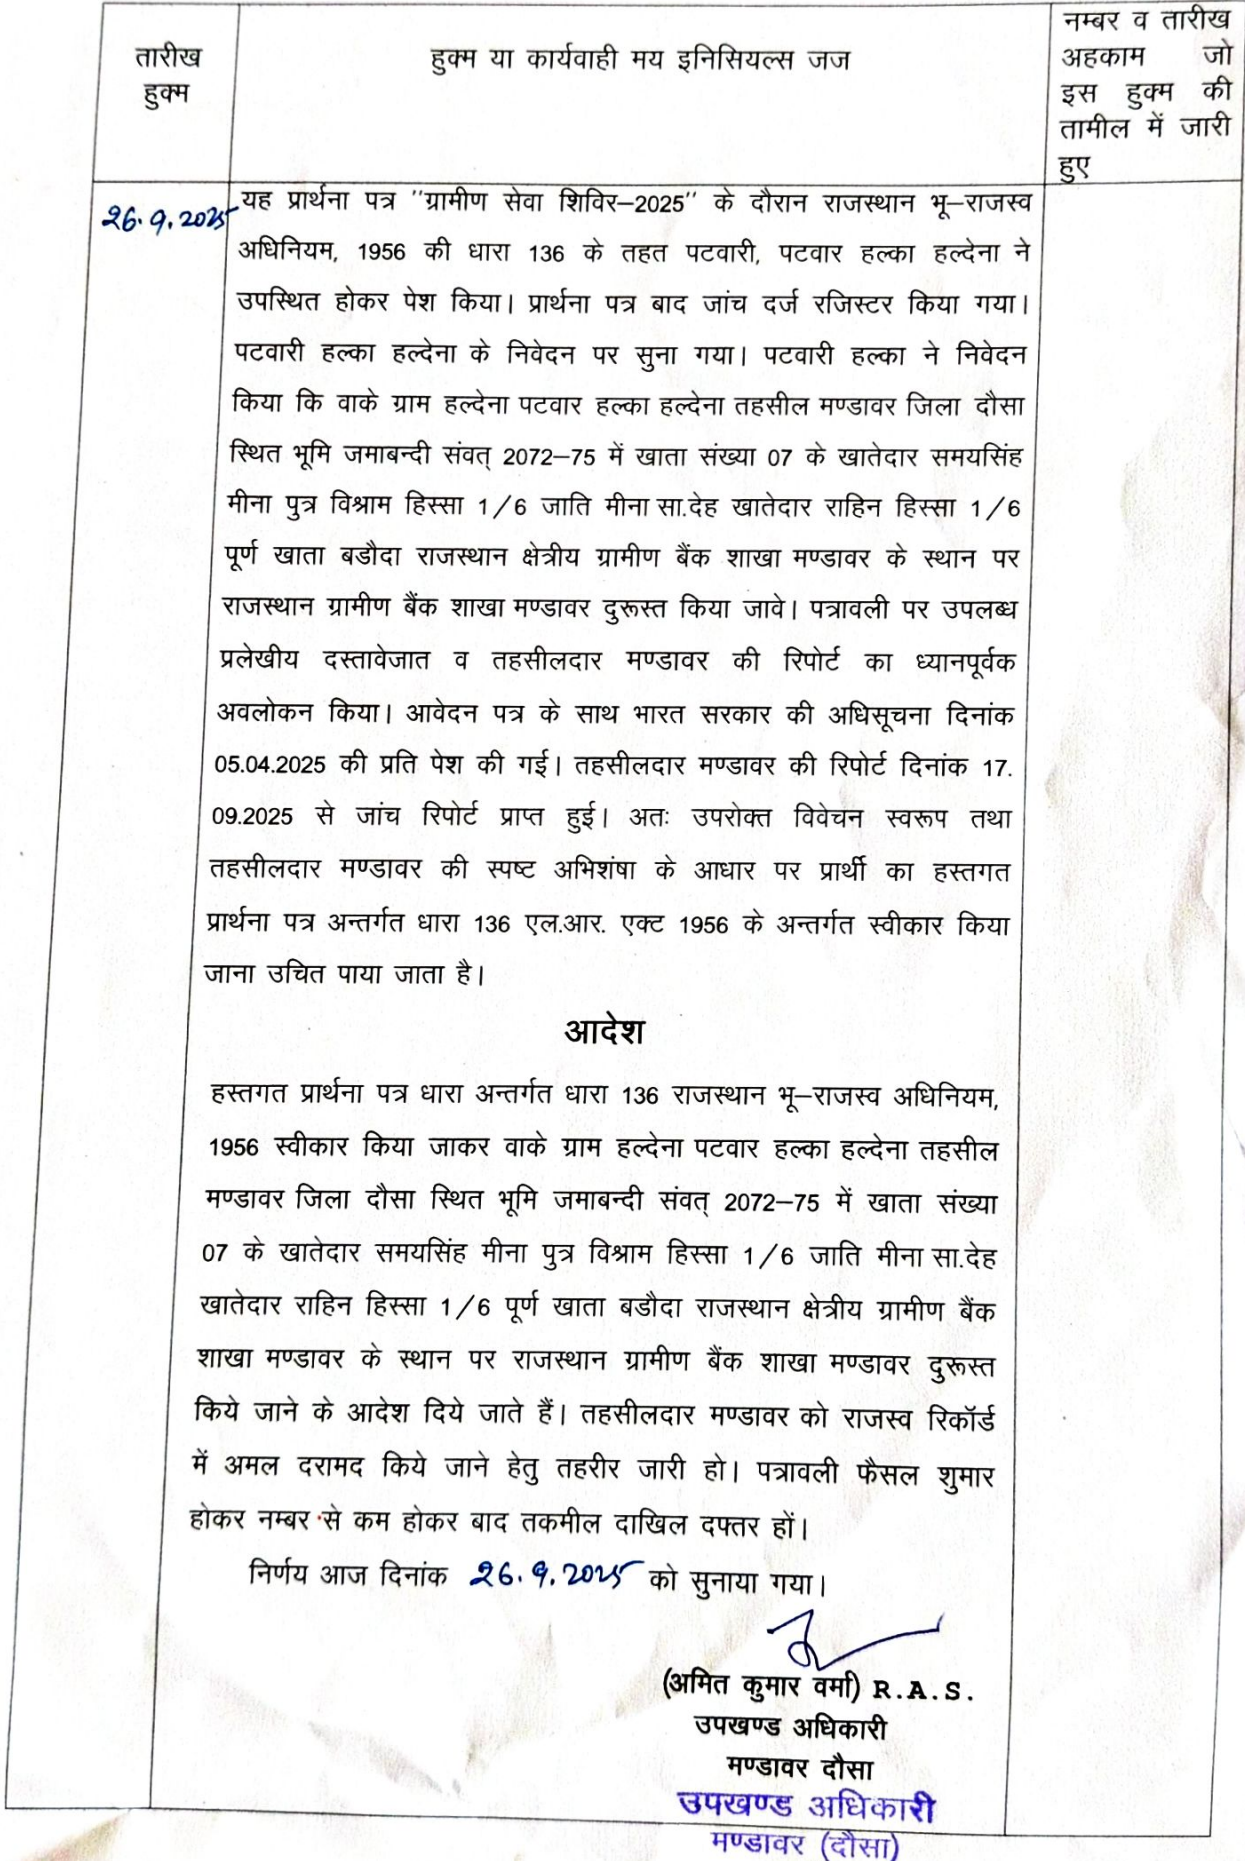 तारीख
हुक्म
हुक्म या कार्यवाही मय इनिसियल्स जज
नम्बर व तारीख
अहकाम जो
इस हुक्म की
तामील में जारी
हुए
26.9.2025
यह प्रार्थना पत्र ''ग्रामीण सेवा शिविर–2025'' के दौरान राजस्थान भू–राजस्व
अधिनियम, 1956 की धारा 136 के तहत पटवारी, पटवार हल्का हल्देना ने
उपस्थित होकर पेश किया। प्रार्थना पत्र बाद जांच दर्ज रजिस्टर किया गया।
पटवारी हल्का हल्देना के निवेदन पर सुना गया। पटवारी हल्का ने निवेदन
किया कि वाके ग्राम हल्देना पटवार हल्का हल्देना तहसील मण्डावर जिला दौसा
स्थित भूमि जमाबन्दी संवत् 2072–75 में खाता संख्या 07 के खातेदार समयसिंह
मीना पुत्र विश्राम हिस्सा 1/6 जाति मीना सा.देह खातेदार राहिन हिस्सा 1/6
पूर्ण खाता बडौदा राजस्थान क्षेत्रीय ग्रामीण बैंक शाखा मण्डावर के स्थान पर
राजस्थान ग्रामीण बैंक शाखा मण्डावर दुरूस्त किया जावे। पत्रावली पर उपलब्ध
प्रलेखीय दस्तावेजात व तहसीलदार मण्डावर की रिपोर्ट का ध्यानपूर्वक
अवलोकन किया। आवेदन पत्र के साथ भारत सरकार की अधिसूचना दिनांक
05.04.2025 की प्रति पेश की गई। तहसीलदार मण्डावर की रिपोर्ट दिनांक 17.
09.2025 से जांच रिपोर्ट प्राप्त हुई। अतः उपरोक्त विवेचन स्वरूप तथा
तहसीलदार मण्डावर की स्पष्ट अभिशंषा के आधार पर प्रार्थी का हस्तगत
प्रार्थना पत्र अन्तर्गत धारा 136 एल.आर. एक्ट 1956 के अन्तर्गत स्वीकार किया
जाना उचित पाया जाता है।
आदेश
हस्तगत प्रार्थना पत्र धारा अन्तर्गत धारा 136 राजस्थान भू–राजस्व अधिनियम,
1956 स्वीकार किया जाकर वाके ग्राम हल्देना पटवार हल्का हल्देना तहसील
मण्डावर जिला दौसा स्थित भूमि जमाबन्दी संवत् 2072–75 में खाता संख्या
07 के खातेदार समयसिंह मीना पुत्र विश्राम हिस्सा 1/6 जाति मीना सा.देह
खातेदार राहिन हिस्सा 1/6 पूर्ण खाता बडौदा राजस्थान क्षेत्रीय ग्रामीण बैंक
शाखा मण्डावर के स्थान पर राजस्थान ग्रामीण बैंक शाखा मण्डावर दुरूस्त
किये जाने के आदेश दिये जाते हैं। तहसीलदार मण्डावर को राजस्व रिकॉर्ड
में अमल दरामद किये जाने हेतु तहरीर जारी हो। पत्रावली फैसल शुमार
होकर नम्बर से कम होकर बाद तकमील दाखिल दफ्तर हों।
निर्णय आज दिनांक 26.9.2025 को सुनाया गया।
(अमित कुमार वर्मा) R.A.S.
उपखण्ड अधिकारी
मण्डावर दौसा
उपखण्ड अधिकारी
मण्डावर (दौसा)